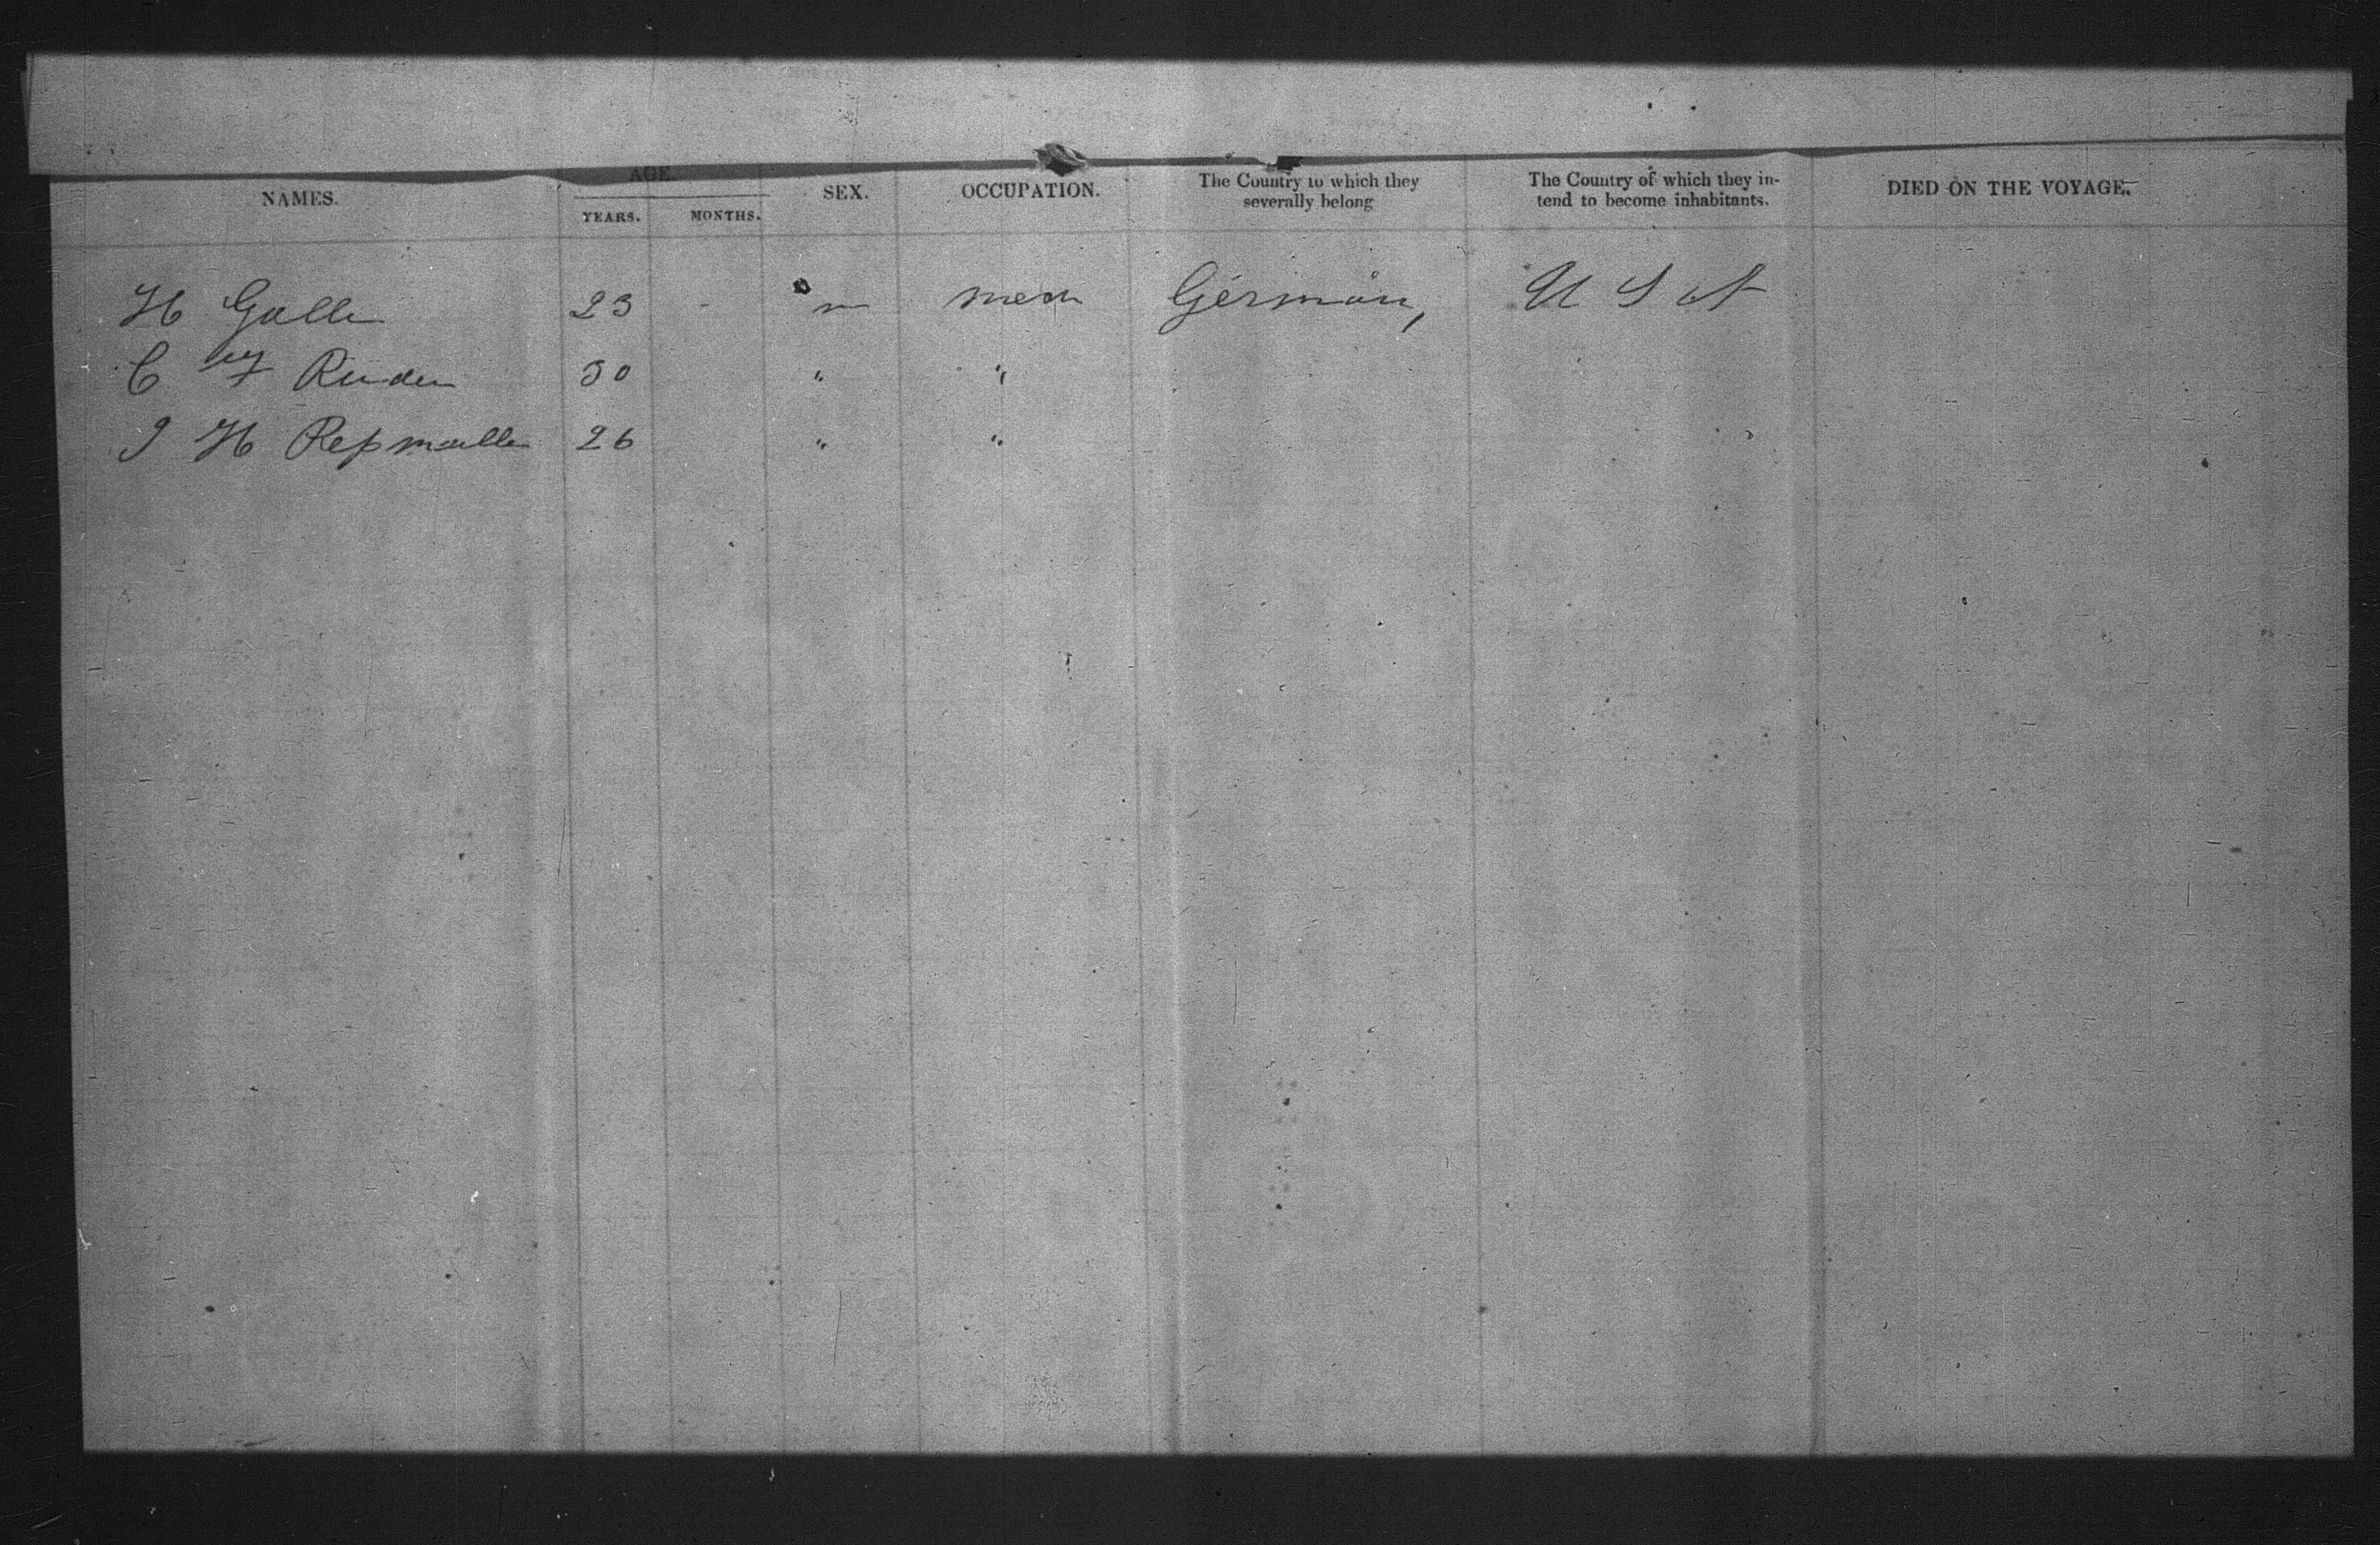 NAMES. AGE. YEARS. MONTHS. SEX. OCCUPATION. The Country to which they severally belong The Country of which they intend to become inhabitants. DIED ON THE VOYAGE.
H Galle 23 - m mech German, U S A
C Ruden 30 " "
J H Repmalle 26 " "